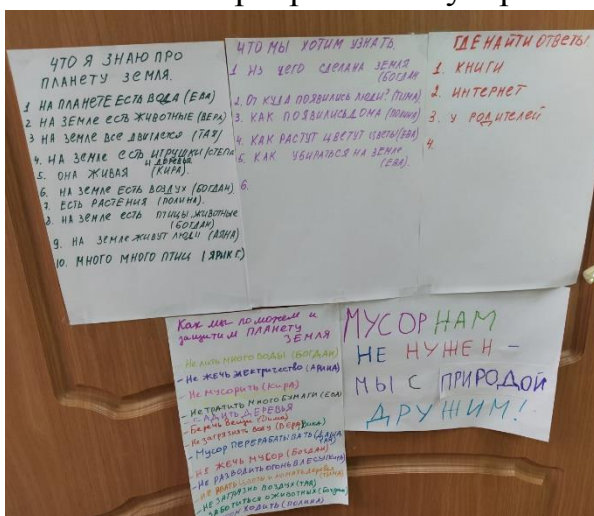 ЧТО Я ЗНАЮ ПРО
ПЛАНЕТУ ЗЕМЛЯ.
1 НА ПЛАНЕТЕ ЕСТЬ ВОДА (ЕВА)
2 НА ЗЕМЛЕ ЕСТЬ ЖИВОТНЫЕ (ВЕРА)
3 НА ЗЕМЛЕ ВСЕ ДВИГАЕТСЯ (ТАЯ)
4. НА ЗЕМЛЕ ЕСТЬ ИГРУШКИ (СТЕПА
И ДЕРЕВЬЯ
5. ОНА ЖИВАЯ (КИРА).
6. НА ЗЕМЛЕ ЕСТЬ ВОЗДУХ (БОГДАН)
7. ЕСТЬ РАСТЕНИЯ (ПОЛИНА).
8. НА ЗЕМЛЕ ЕСТЬ ПТИЦЫ, ЖИВОТНЫЕ
(БОГДАН)
9. НА ЗЕМЛЕ ЖИВУТ ЛЮДИ (АЯНА)
10. МНОГО МНОГО ПТИЦ (ЯРИК Г.)
ЧТО МЫ ХОТИМ УЗНАТЬ.
1 ИЗ ЧЕГО СДЕЛАНА ЗЕМЛЯ
(БОГДАН
2. ОТ КУДА ПОЯВИЛИСЬ ЛЮДИ? (ТИМА)
3. КАК ПОЯВИЛИСЬ ДОМА (ПОЛИНА)
4. КАК РАСТУТ ЦВЕТУТ ЦВЕТЫ (ЕВА)
5. КАК УБИРАТЬСЯ НА ЗЕМЛЕ
(ЕВА).
6.
ГДЕ НАЙТИ ОТВЕТЫ
1. КНИГИ
2. ИНТЕРНЕТ
3. У РОДИТЕЛЕЙ
4.
Как мы поможем и
защитим ПЛАНЕТУ
ЗЕМЛЯ
- Не лить много воды (БОГДАН)
- НЕ ЖЕЧЬ ЭЛЕКТРИЧЕСТВО (АРИНА)
- Не МУСОРИТЬ (КИРА)
- НЕ ТРАТИТЬ МНОГО БУМАГИ (ЕВА)
- САДИТЬ ДЕРЕВЬЯ
- Беречь вещи (Дима)
- Не загрязнять воду (ВЕРА,
- Мусор ПЕРЕРАБАТЫВАТЬ
- НЕ ЖЕЧЬ МУСОР (БОГДАН)
- НЕ РАЗВОДИТЬ ОГОНЬ В ЛЕСУ
- НЕ РВАТЬ ЦВЕТЫ И
- НЕ ЗАГРЯЗНЯ ВОЗДУХ (ТАЯ)
- ЗАБОТИТЬСЯ О ЖИВОТНЫХ (Богдан)
ХОДИТЬ (ПОЛИНА)
МУСОР НАМ
НЕ НУЖЕН -
МЫ С ПРИРОДОЙ
ДРУЖИМ!